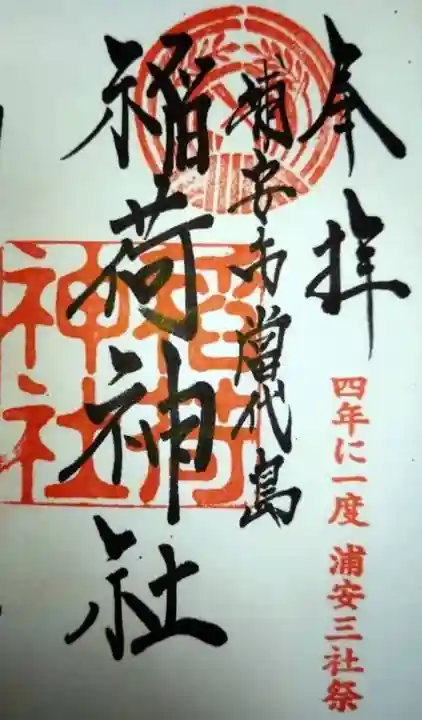 奉拝
四年に一度 浦安三社祭
浦安市當代島
稲荷神社
稲荷神社